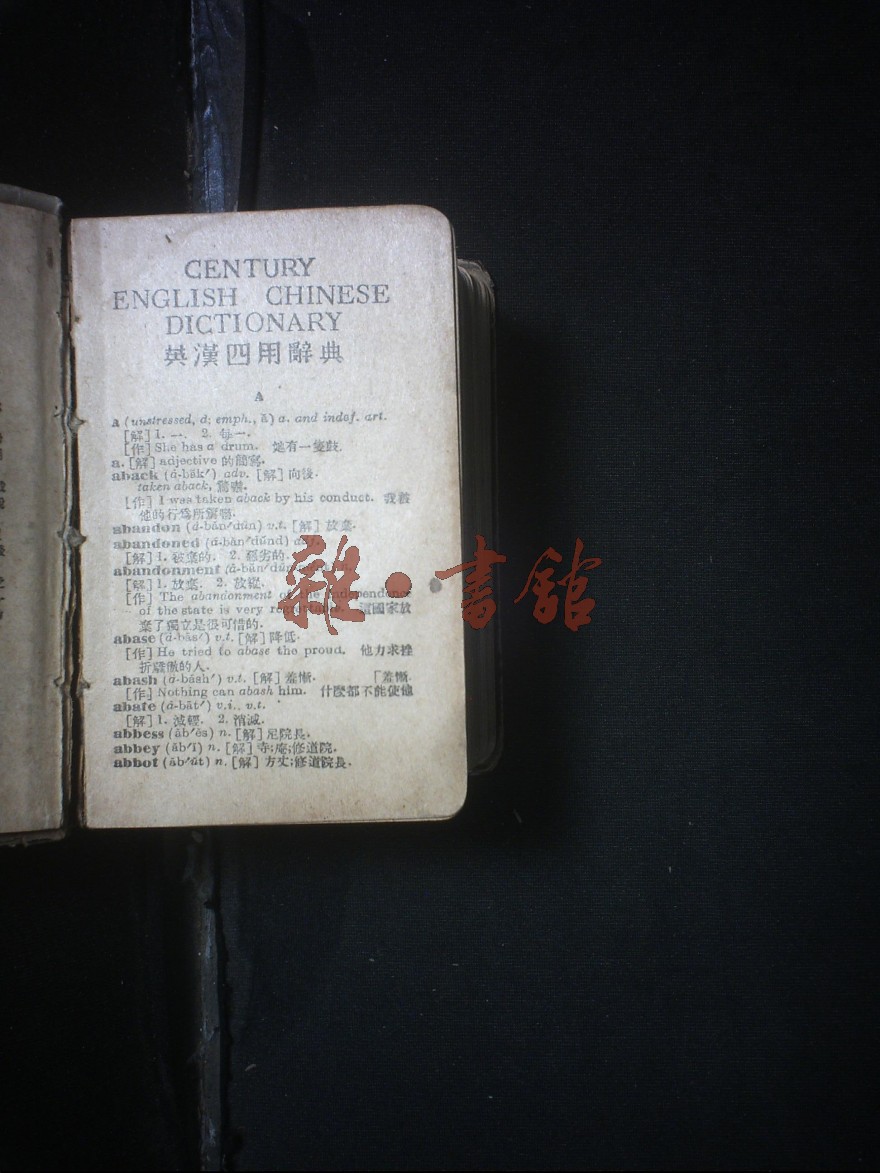 CENTURY
ENGLISH CHINESE
DICTIONARY
英漢四用辭典
A
a (unstressed, ȧ; emph., ā) a. and indef. art.
[解] 1. 一. 2. 每一.
[作] She has a drum. 她有一隻鼓.
a. [解] adjective 的簡寫.
aback (ȧ-băk′) adv. [解] 向後.
taken aback, 驚嚇.
[作] I was taken aback by his conduct. 我被
他的行爲所驚嚇.
abandon (ȧ-băn′dŭn) v.t. [解] 放棄.
abandoned (ȧ-băn′dŭnd)
[解] 1. 被棄的. 2. 惡劣的.
abandonment
[解] 1. 放棄. 2. 放縱.
[作] The abandonment of the independence
of the state is very 這國家放
棄了獨立是很可惜的.
abase (ȧ-bās′) v.t. [解] 降低.
[作] He tried to abase the proud. 他力求挫
折驕傲的人.
abash (ȧ-băsh′) v.t. [解] 羞慚. 「羞慚.
[作] Nothing can abash him. 什麼都不能使他
abate (ȧ-bāt′) v.i., v.t.
[解] 1. 減輕. 2. 消滅.
abbess (ăb′ĕs) n. [解] 尼院長.
abbey (ăb′ĭ) n. [解] 寺;庵;修道院.
abbot (ăb′ŭt) n. [解] 方丈;修道院長.
雜·書館